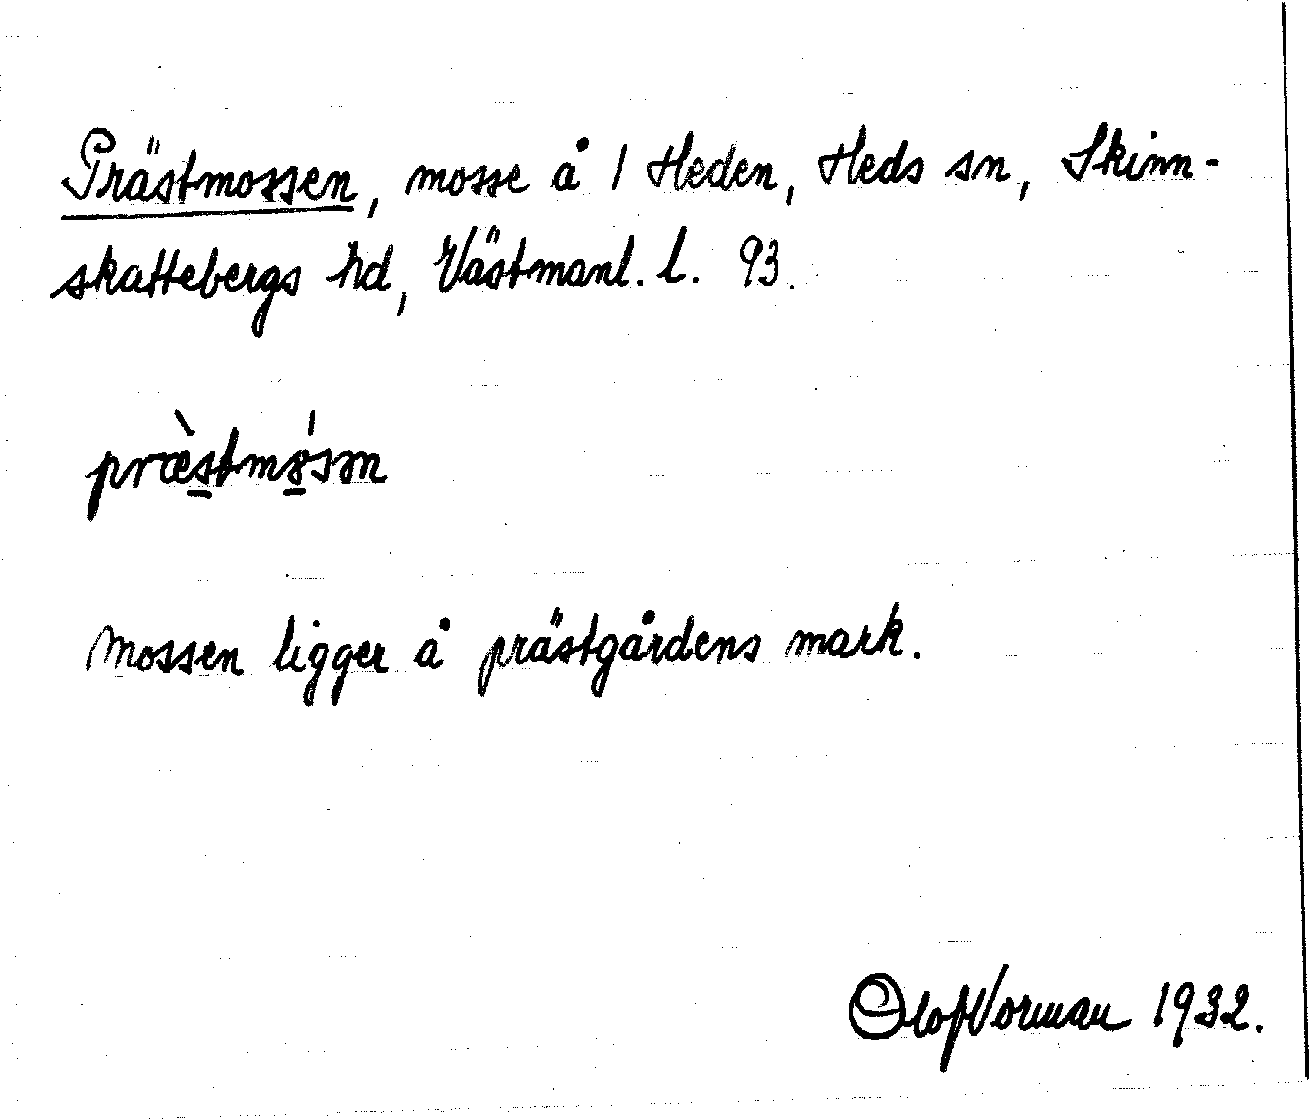 Prästmossen, mosse å 1 Heden, Heds sn, Skinn-
skattebergs hd, Västmanl. l. 93.
præ̀stmɞ́sən
Mossen ligger å prästgårdens mark.
Olof Norman 1932.